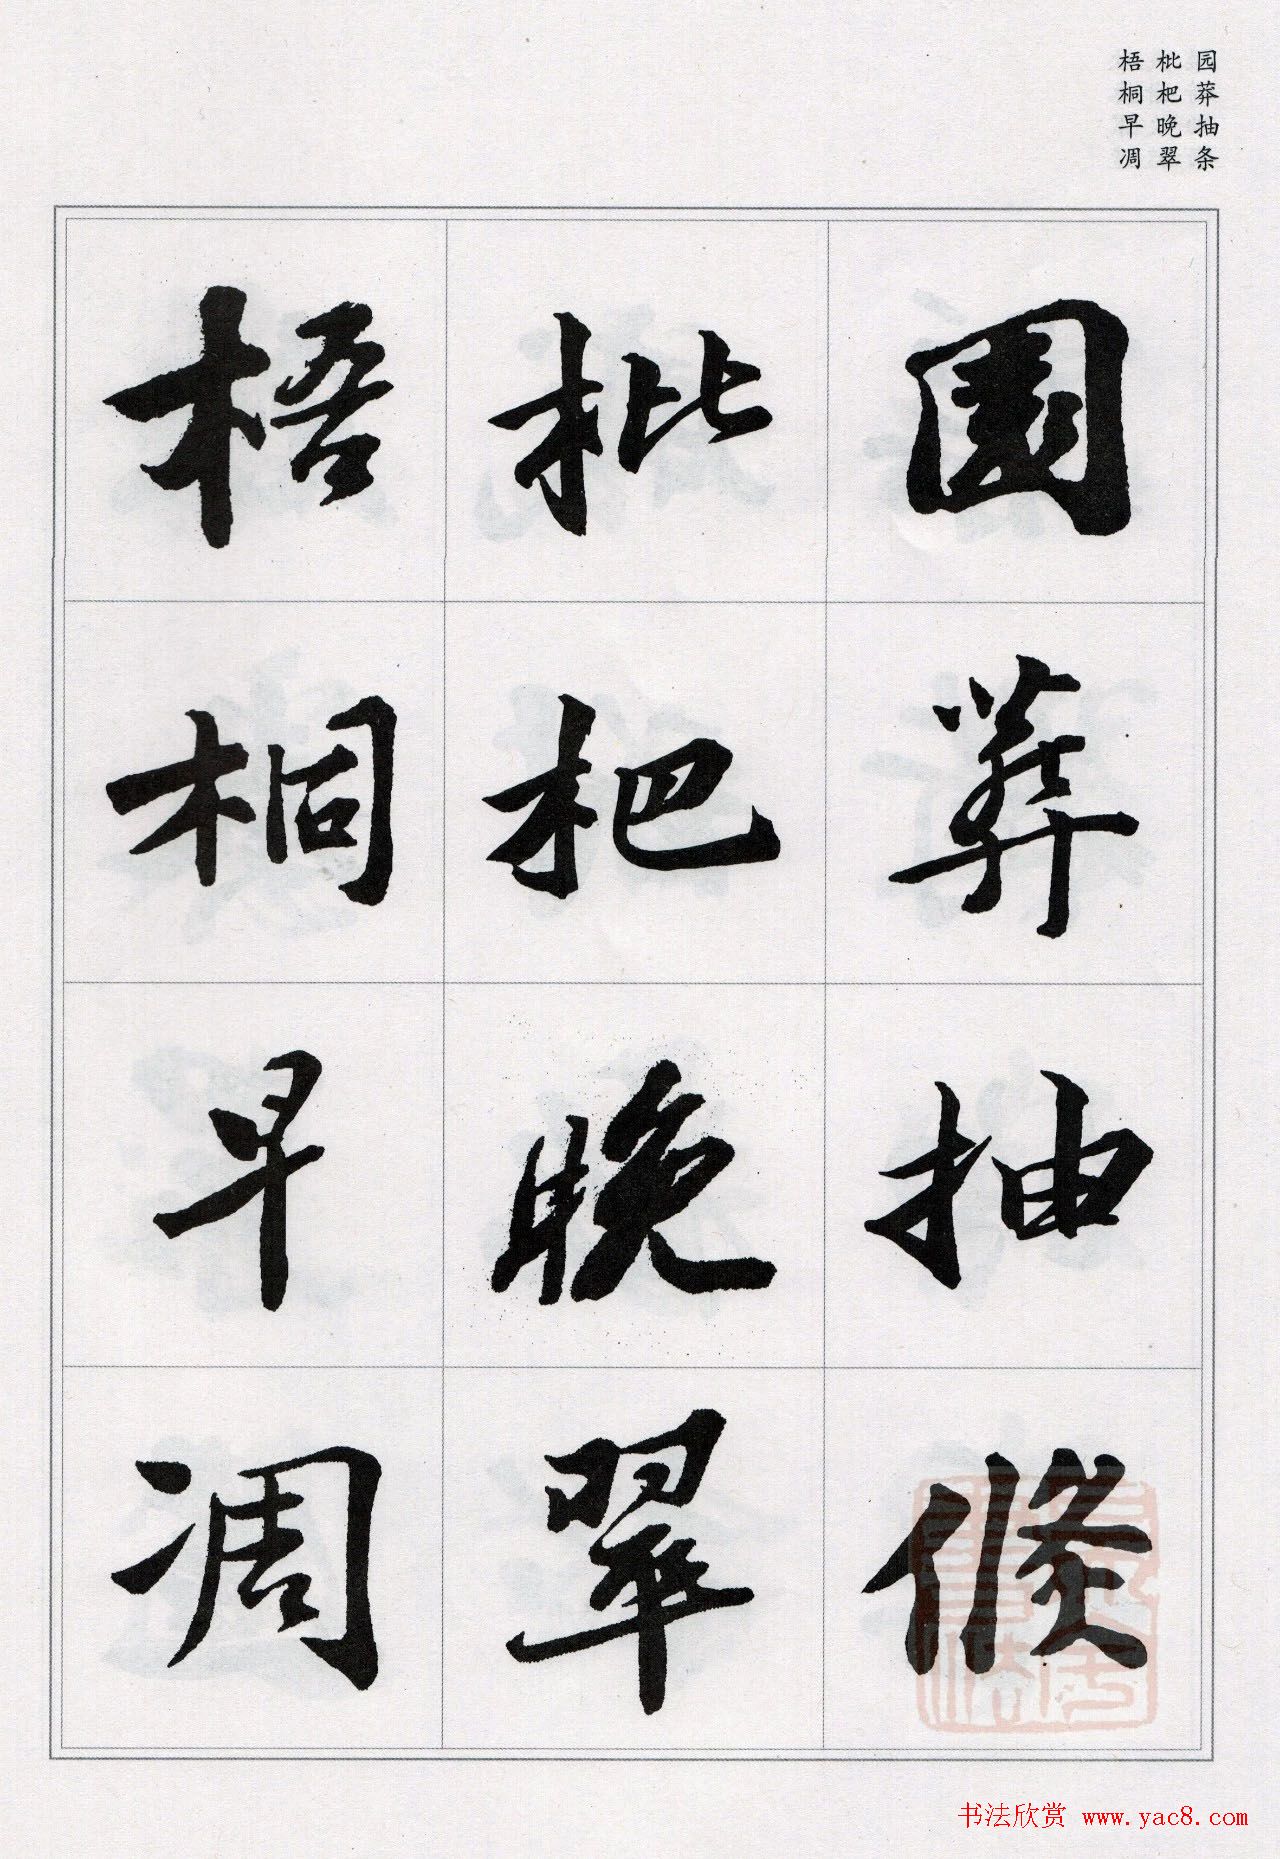 园莽抽条
枇杷晚翠
梧桐早凋
園莽抽條
枇杷晚翠
梧桐早凋
书法欣赏 www.yac8.com